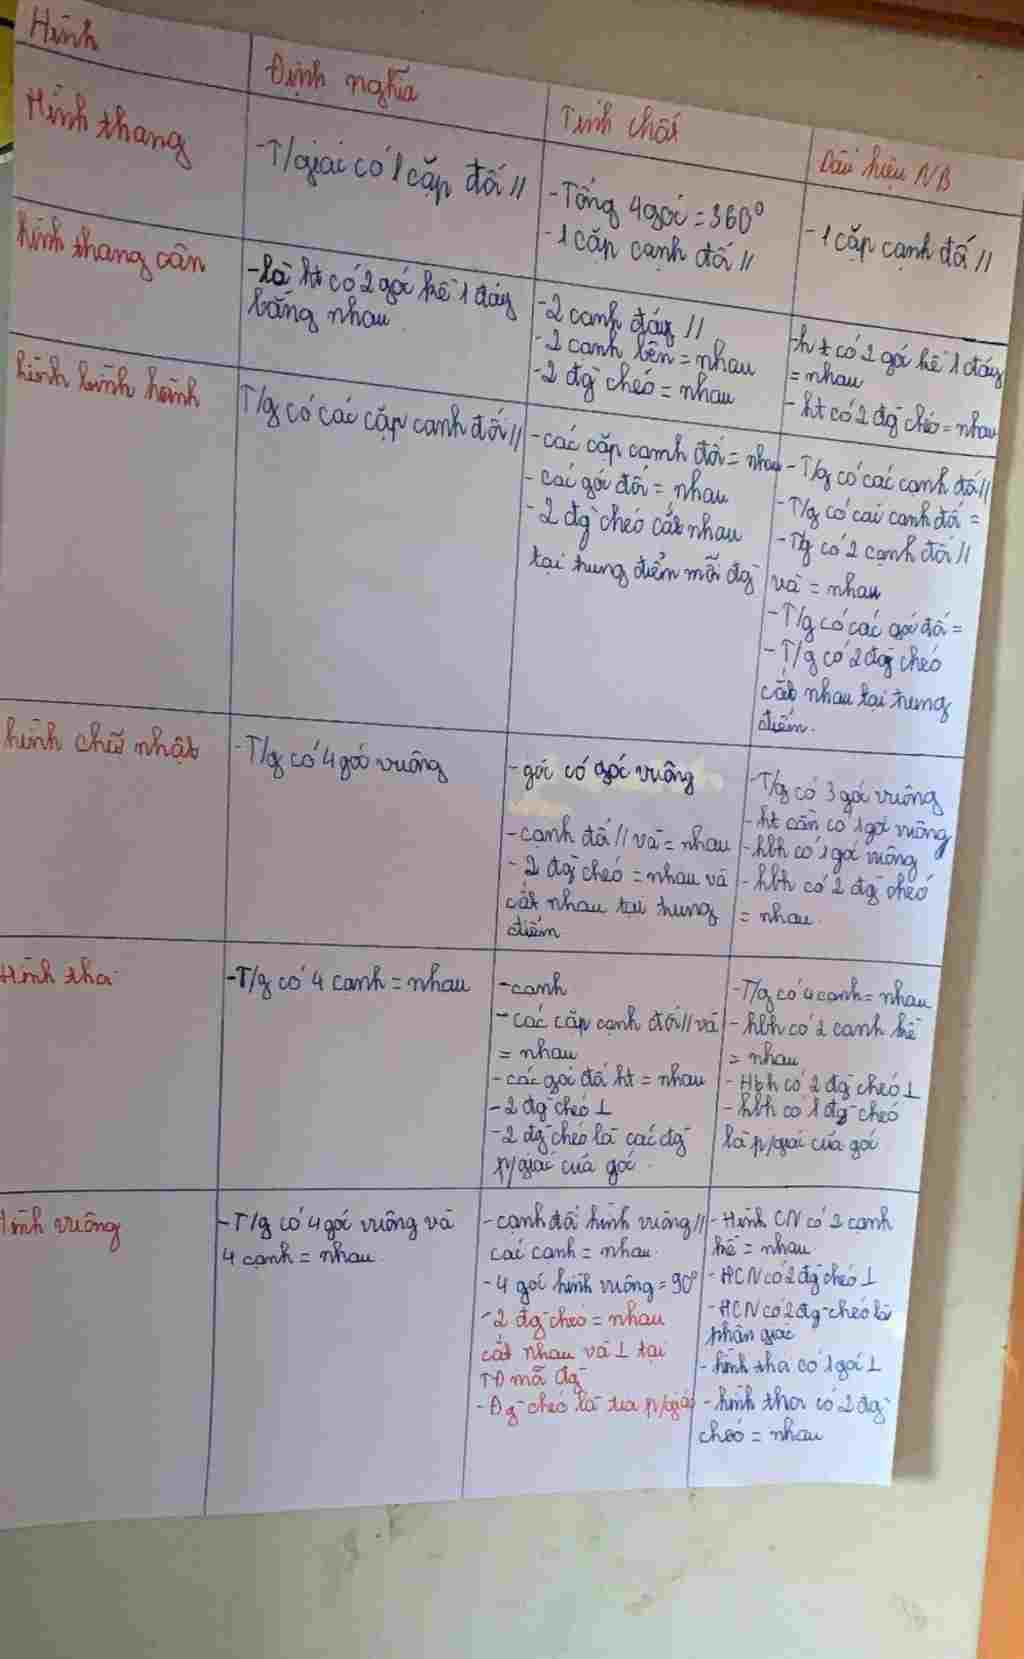 Hình
Định nghĩa
Tính chất
Dấu hiệu N/B
Hình thang
-T/giác có 1 cặp đối //
-Tổng 4 góc = 360°
-1 cặp cạnh đối //
-1 cặp cạnh đối //
hình thang cân
-là ht có 2 góc kề 1 đáy
bằng nhau.
-2 cạnh đáy //
-2 cạnh bên = nhau
-2 đg chéo = nhau
-ht có 2 góc kề 1 đáy
= nhau
-ht có 2 đg chéo = nhau
hình bình hành
T/g có các cặp cạnh đối //
-các cặp cạnh đối = nhau
-các góc đối = nhau
-2 đg chéo cắt nhau
tại trung điểm mỗi đg
-T/g có các cạnh đối //
-T/g có các cạnh đối =
-T/g có 2 cạnh đối //
và = nhau
-T/g có các góc đối =
-T/g có 2 đg chéo
cắt nhau tại trung
điểm.
hình chữ nhật
-T/g có 4 góc vuông
-góc có góc vuông
-cạnh đối // và = nhau
-2 đg chéo = nhau và
cắt nhau tại trung
điểm
-T/g có 3 góc vuông
-ht cân có 1 góc vuông
-hbh có 1 góc vuông
-hbh có 2 đg chéo
= nhau.
Hình thoi
-T/g có 4 cạnh = nhau
-cạnh
-các cặp cạnh đối // và
= nhau
-các góc đối ht = nhau
-2 đg chéo ⊥
-2 đg chéo là các đg
p/giác của góc.
-T/g có 4 cạnh = nhau
-hbh có 2 cạnh kề
= nhau
-Hbh có 2 đg chéo ⊥
-hbh có 1 đg chéo
là p/giác của góc
Hình vuông
-T/g có 4 góc vuông và
4 cạnh = nhau.
-cạnh đối hình vuông //
các cạnh = nhau.
-4 góc hình vuông = 90°
-2 đg chéo = nhau
cắt nhau và ⊥ tại
TĐ mỗi đg
-Đg chéo là tia p/giác
-Hình CN có 2 cạnh
kề = nhau
-HCN có 2 đg chéo ⊥
-HCN có 2 đg chéo là
phân giác
-hình thoi có 1 góc ⊥
-hình thoi có 2 đg
chéo = nhau